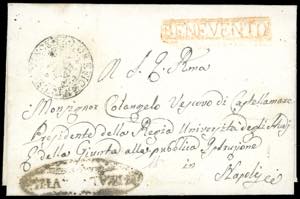 BENEVENTO
A S. E. Rma
Monsignor Colangelo Vescovo di Castellamare
Presidente della Regia Università degli Studj
e della Giunta alla pubblica Istruzione
in
Napoli